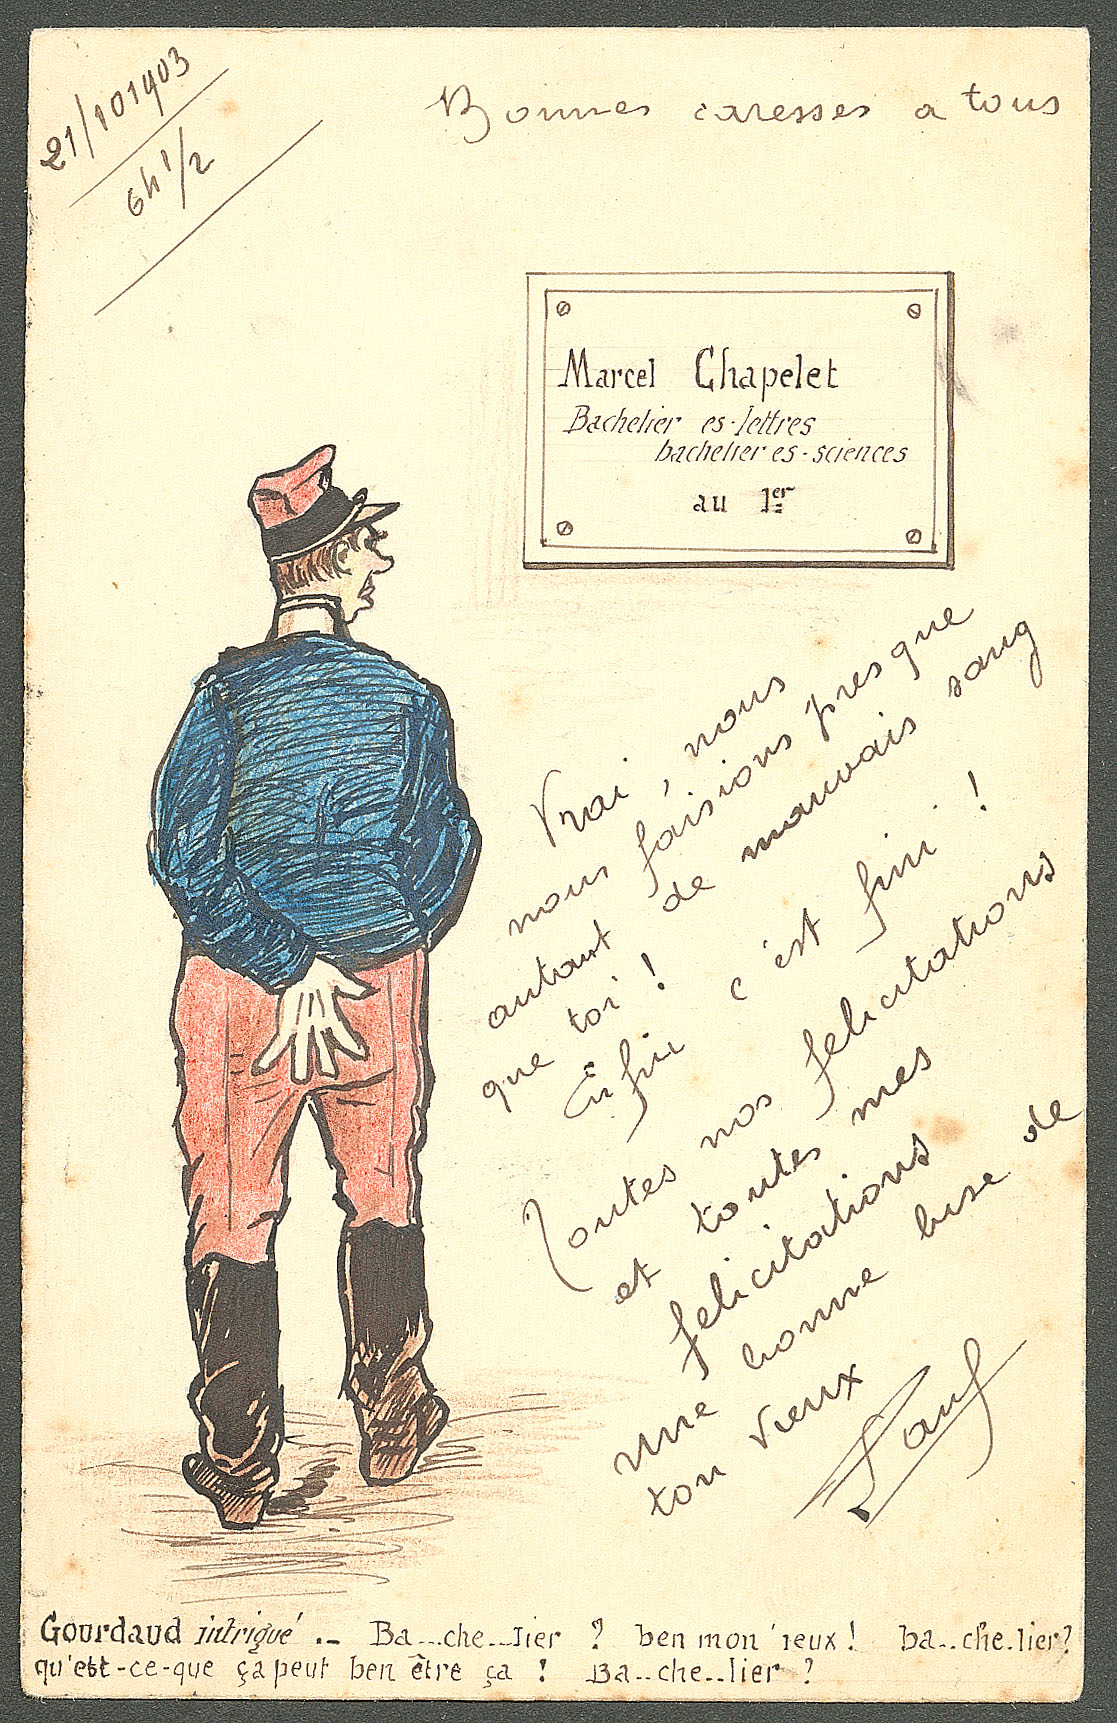 21/101903
6h 1/2
Bonnes caresses a tous
Marcel Chapelet
Bachelier es-lettres
bachelier es-sciences
au 1er
Vrai, nous
nous faisions presque
autant de mauvais sang
que toi !
Enfin c'est fini !
Toutes nos felicitations
et toutes mes
felicitations
une bonne bise de
ton vieux
Gourdaud intrigué .. Ba...che...lier ? ben mon 'ieux ! ba...che.lier ?
qu'est-ce-que ça peut ben être ça ! Ba...che..lier ?